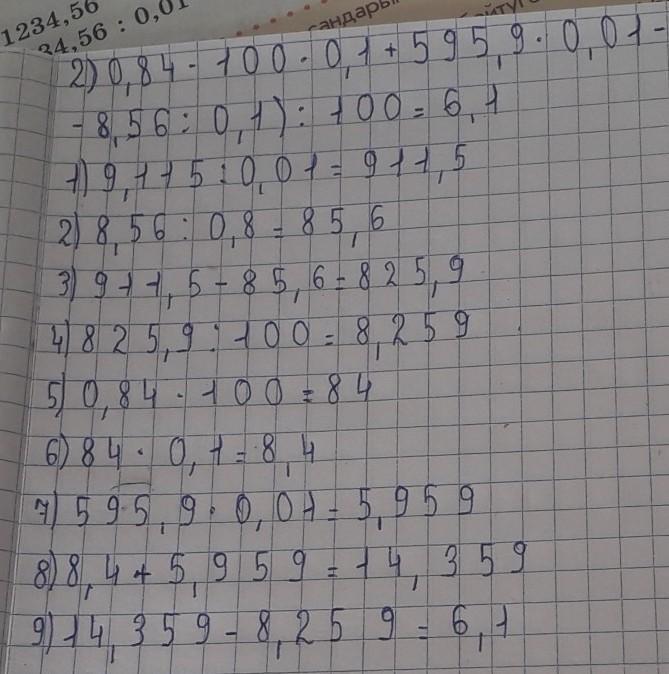 1234,56
34,56 : 0,01
сандары
2) 0,84 · 100 · 0,1 + 595,9 · 0,01 -
- 8,56 : 0,1) : 100 = 6,1
1) 9,115 : 0,01 = 911,5
2) 8,56 : 0,8 = 85,6
3) 911,5 - 85,6 = 825,9
4) 825,9 : 100 = 8,259
5) 0,84 · 100 = 84
6) 84 · 0,1 = 8,4
7) 595,9 · 0,01 = 5,959
8) 8,4 + 5,959 = 14,359
9) 14,359 - 8,259 = 6,1